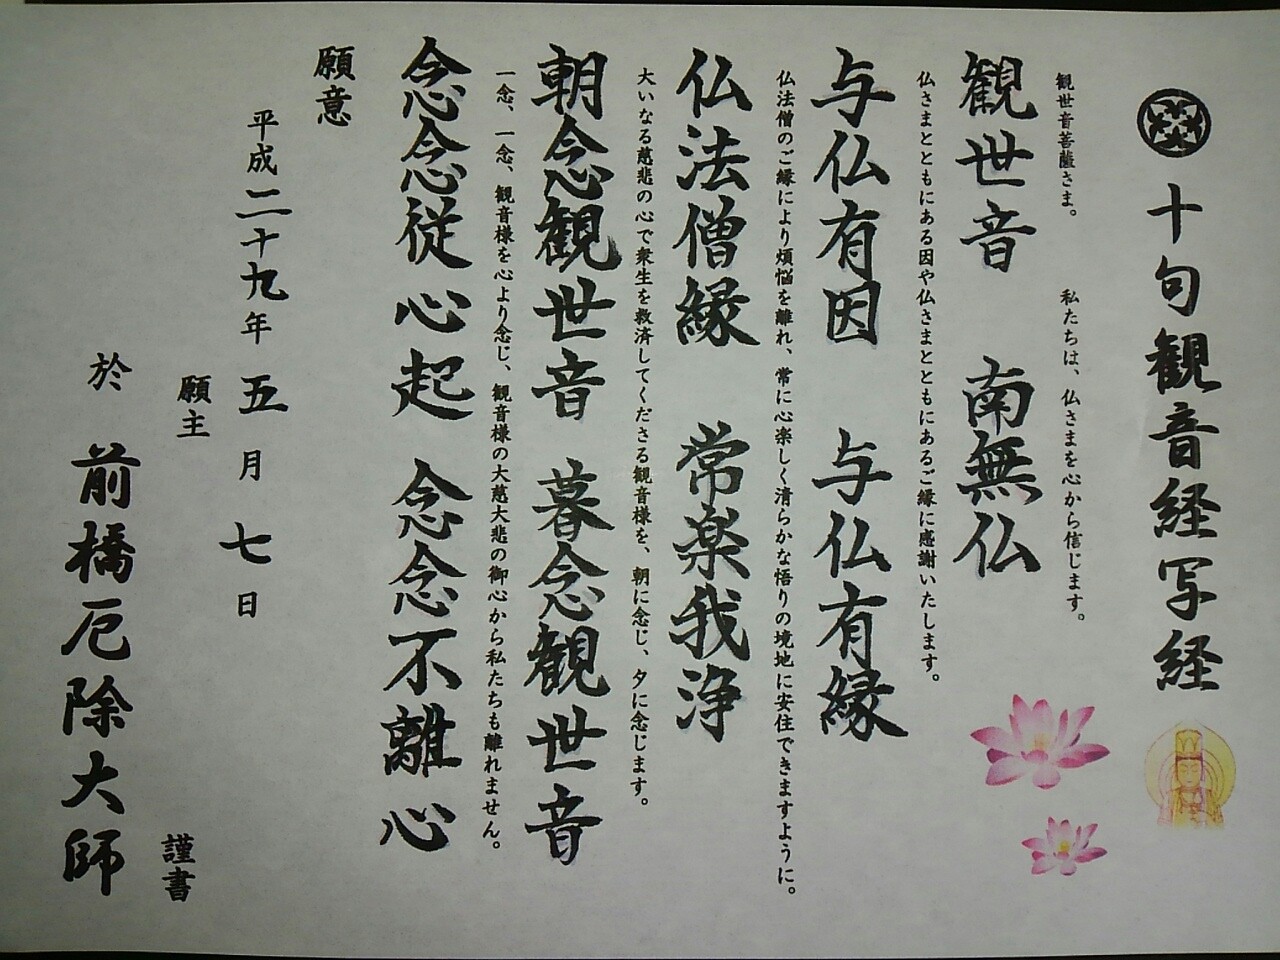 十句観音経写経
観世音菩薩さま。　私たちは、仏さまを心から信じます。
観世音　南無仏
仏さまとともにある因や仏さまとともにあるご縁に感謝いたします。
与仏有因　与仏有縁
仏法僧のご縁により煩悩を離れ、常に心楽しく清らかな悟りの境地に安住できますように。
仏法僧縁　常楽我浄
大いなる慈悲の心で衆生を救済してくださる観音様を、朝に念じ、夕に念じます。
朝念観世音　暮念観世音
一念、一念、観音様を心より念じ、観音様の大慈大悲の御心から私たちも離れません。
念念従心起　念念不離心
願意
平成二十九年　五月　七日
願主　謹書
於　前橋厄除大師